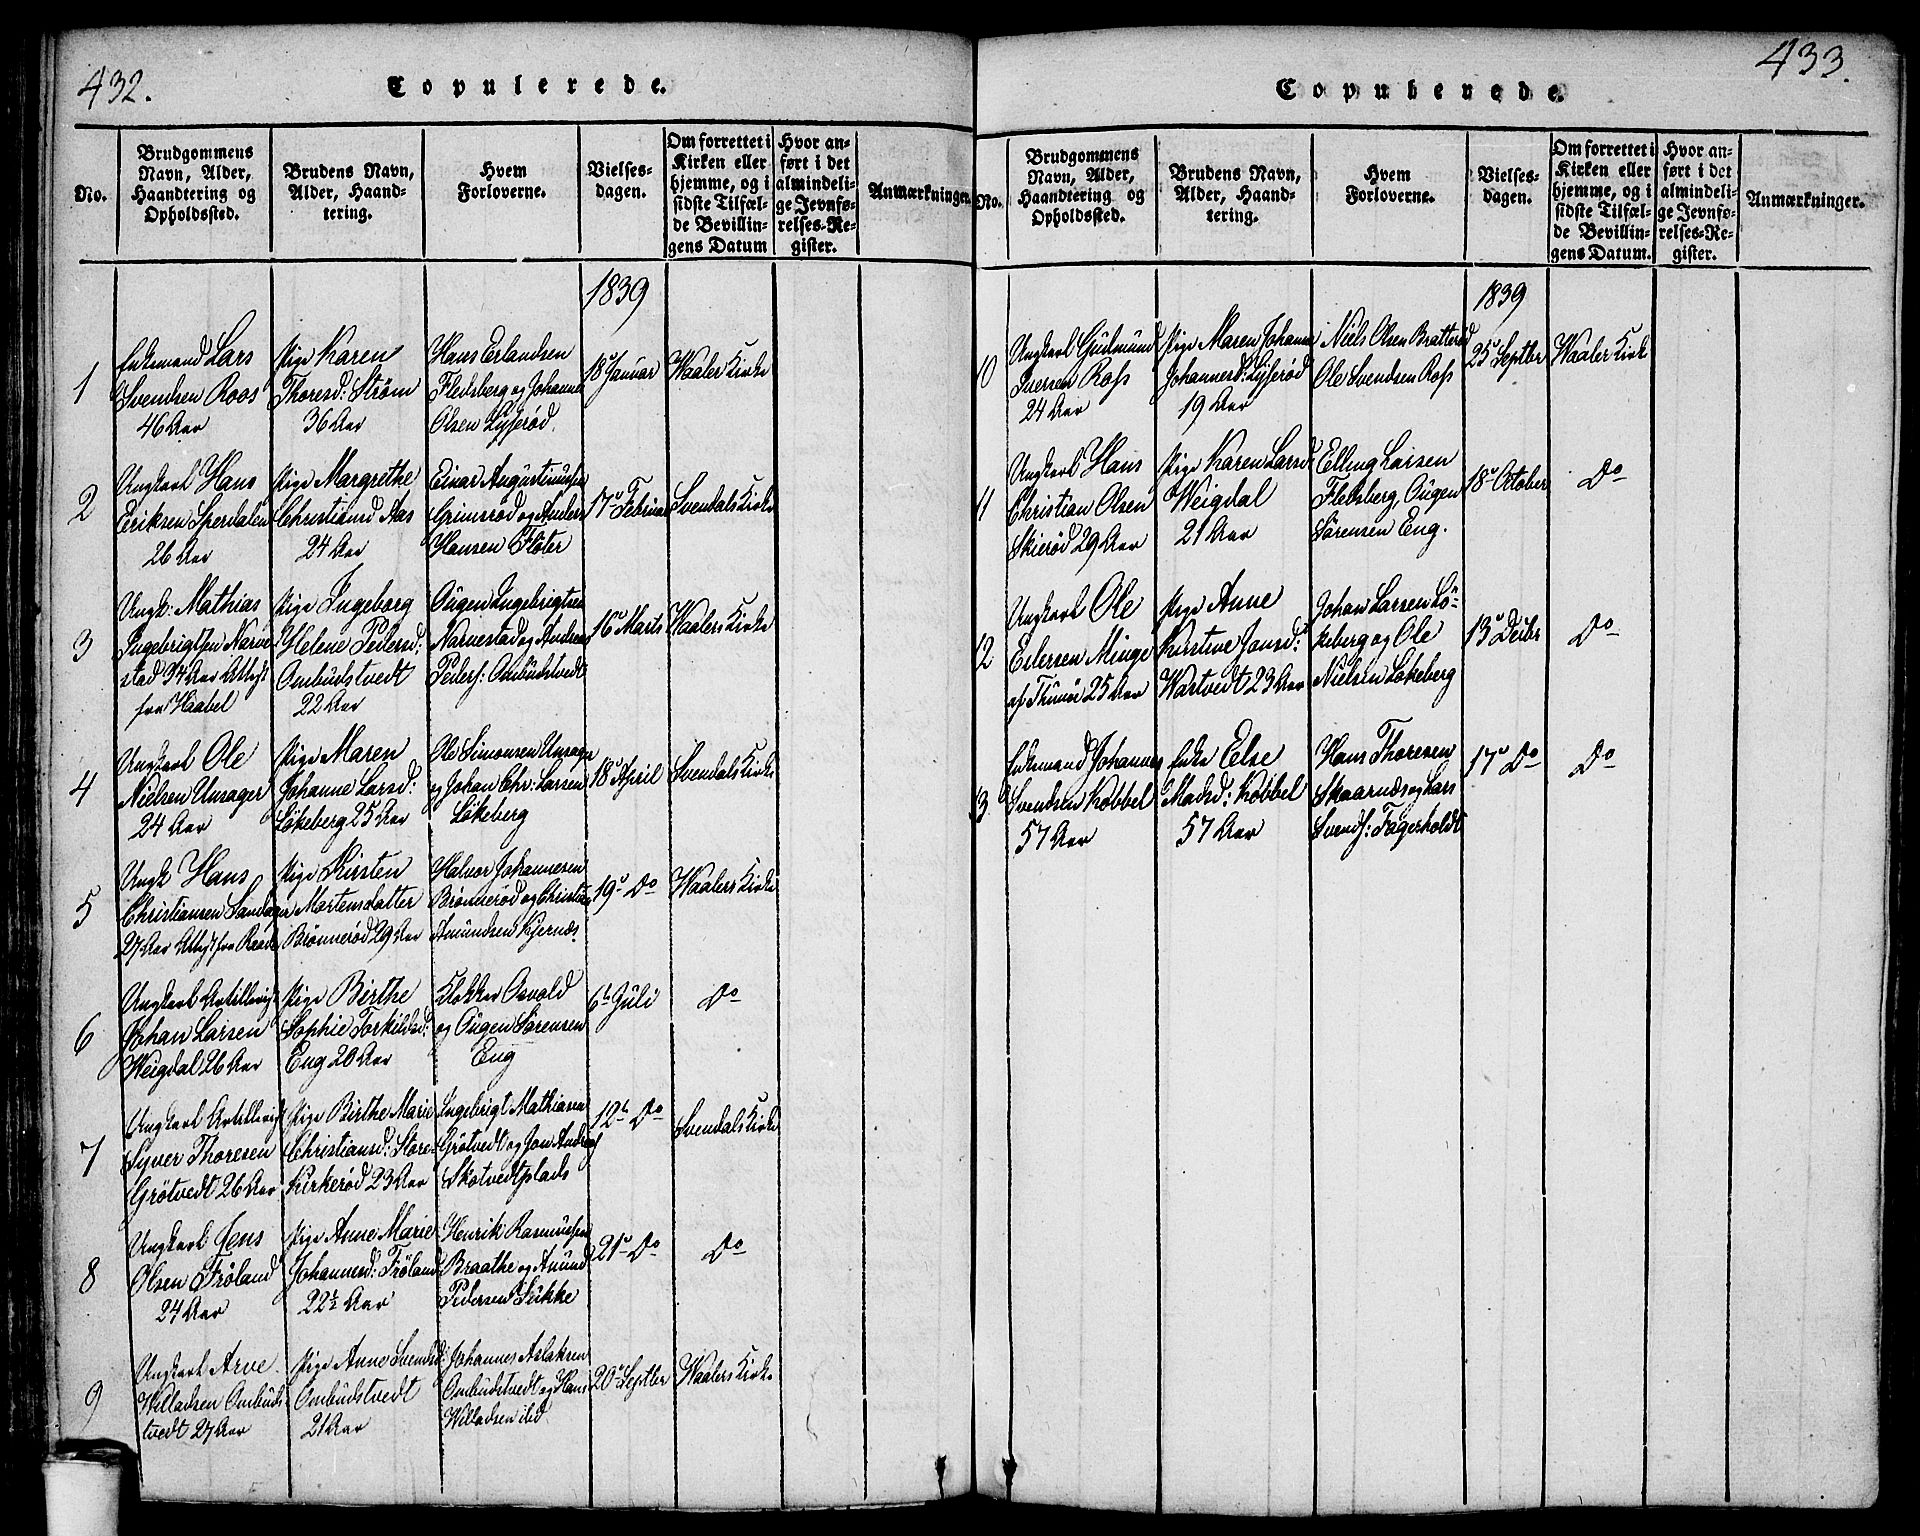 432.
Copulerede.
No.
Brudgommens
Navn, Alder,
Haandtering og
Opholdssted.
Brudens Navn,
Alder, Haand-
tering.
Hvem
Forloverne.
Vielses-
dagen.
Om forrettet i
Kirken eller
hjemme, og i
sidste Tilfæl-
de Bevillin-
gens Datum
Hvor an-
ført i det
almindeli-
ge Jevnfø-
relses-Re-
gister.
Anmærkninger.
1839
1
Enkemand Lars
Svendsen Roos
46 Aar
Pige Karen
Thoresd: Strøm
36 Aar
Hans Erlandsen
Fledsberg og Johannes
Olsen Lysserød.
18 Januar
Waaler Kirke
2
Ungkarl Hans
Eriksen Sperdalen
26 Aar
Pige Margrethe
Christiansd Aas
24 Aar
Einar Augustinussen
Grimsrød og Anders
Hansen Fløter
17 Februar
Svendals Kirke
3
Ungk: Mathias
Ingebrigtsen Narve
stad 34 Aar Attest
fra Haabel
Pige Ingeborg
Helene Pedersd:
Ombudstvedt
22 Aar
Ougen Ingebrigtsen
Narvestad og Andreas
Peders: Ombudstvedt
16 Marts
Waalers Kirke
4
Ungkarl Ole
Nielsen Unsager
24 Aar
Pige Maren
Johanne Larsd:
Løkeberg 25 Aar
Ole Simonsen Unsager
og Johan Chr: Larsen
Løkeberg
18 April
Svendals Kirke
5
Ungk Hans
Christiansen Sandager
27 Aar Attest fra Raade
Pige Kirsten
Martensdatter
Brønnerød 29 Aar
Halvor Johannesen
Brønnerød og Christian
Amundsen Kjernæs
19 Do
Waalers Kirke
6
Ungkarl Artillerist
Johan Larsen
Weigdal 26 Aar
Pige Birthe
Sophie Torkildsd:
Eng 20 Aar
Klokker Osvald
og Ougen Sørensen
Eng
6 Juli
Do
7
Ungkarl Artillerist
Syver Thoresen
Grøtvedt 26 Aar
Pige Birthe Marie
Christiansd: Store
Kirkerød 23 Aar
Ingebrigt Mathiasen
Grøtvedt og Jon Andreas
Skotvedtplads
12 Do
Svendals Kirke
8
Ungkarl Jens
Olsen Frøland
24 Aar
Pige Anne Marie
Johannesd: Frøland
22½ Aar
Henrik Rasmussen
Braathe og Amund
Pedersen Sukke
21 Do
Do
9
Ungkarl Arve
Willadsen Ombuds
tvedt 27 Aar
Pige Anne Svendsd:
Ombudstvedt
21 Aar
Johannes Aslaksen
Ombudstvedt og Hans
Willadsen ibd
20 Septbr
Waalers Kirke
433.
No.
Brudgommens
Navn, Alder,
Haandtering og
Opholdssted.
Brudens Navn,
Alder, Haand-
tering.
Hvem
Forloverne.
Vielses-
dagen.
Om forrettet i
Kirken eller
hjemme, og i
sidste Tilfæl-
de Bevillin-
gens Datum.
Hvor an-
ført i det
almindeli-
ge Jevnfø-
relses-Re-
gister.
Anmærkninger.
1839
10
Ungkarl Gulmund
Iversen Ross
24 Aar
Pige Maren Johanne
Johannesd: Lysserød
19 Aar
Niels Olsen Bratterød
Ole Svendsen Ross
25 Septbr
Waaler Kirke
11
Ungkarl Hans
Christian Olsen
Skierød 29 Aar
Pige Karen Larsd:
Weigdal
21 Aar
Elling Larsen
Fledsberg, Ougen
Sørensen Eng.
18 October
Do
12
Ungkarl Ole
Eilersen Minge
af Thunø 25 Aar
Pige Anne
Kirstine Jonsd:
Wartvedt 23 Aar
Johan Larsen Lö-
keberg og Ole
Nielsen Løkeberg
13 Decbr
Do
13
Enkemand Johannes
Svendsen Købbel
57 Aar
Enke Else
Madsd: Købbel
57 Aar
Hans Thoresen
Skaarnæs og Lars
Svends: Fagerholdt
17 Do
Do